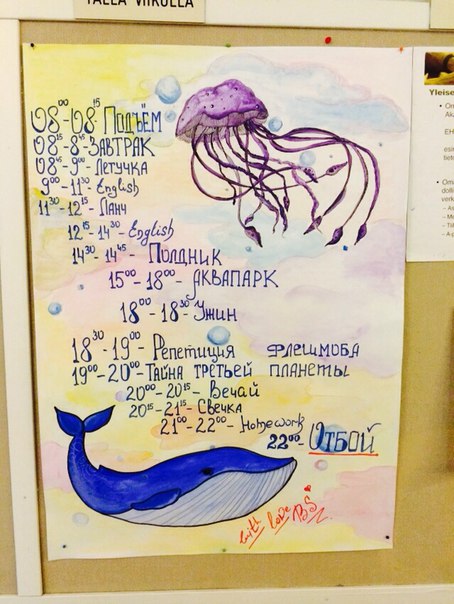 TÄLLÄ VIIKOLLA
08⁰⁰-08¹⁵ Подъём
08¹⁵-8⁴⁵-Завтрак
08⁴⁵-9⁰⁰-Летучка
9⁰⁰-11³⁰ English
11³⁰-12¹⁵-Ланч
12¹⁵-14³⁰-English
14³⁰-14⁴⁵-Полдник
15⁰⁰-18⁰⁰-Аквапарк
18⁰⁰-18³⁰ Ужин
18³⁰-19⁰⁰-Репетиция флешмоба
19⁰⁰-20⁰⁰-Тайна третьей планеты
20⁰⁰-20¹⁵-Вечай
20¹⁵-21¹⁵-Свечка
21⁰⁰-22⁰⁰-Homework
22⁰⁰-Отбой
with love BS
Yleise